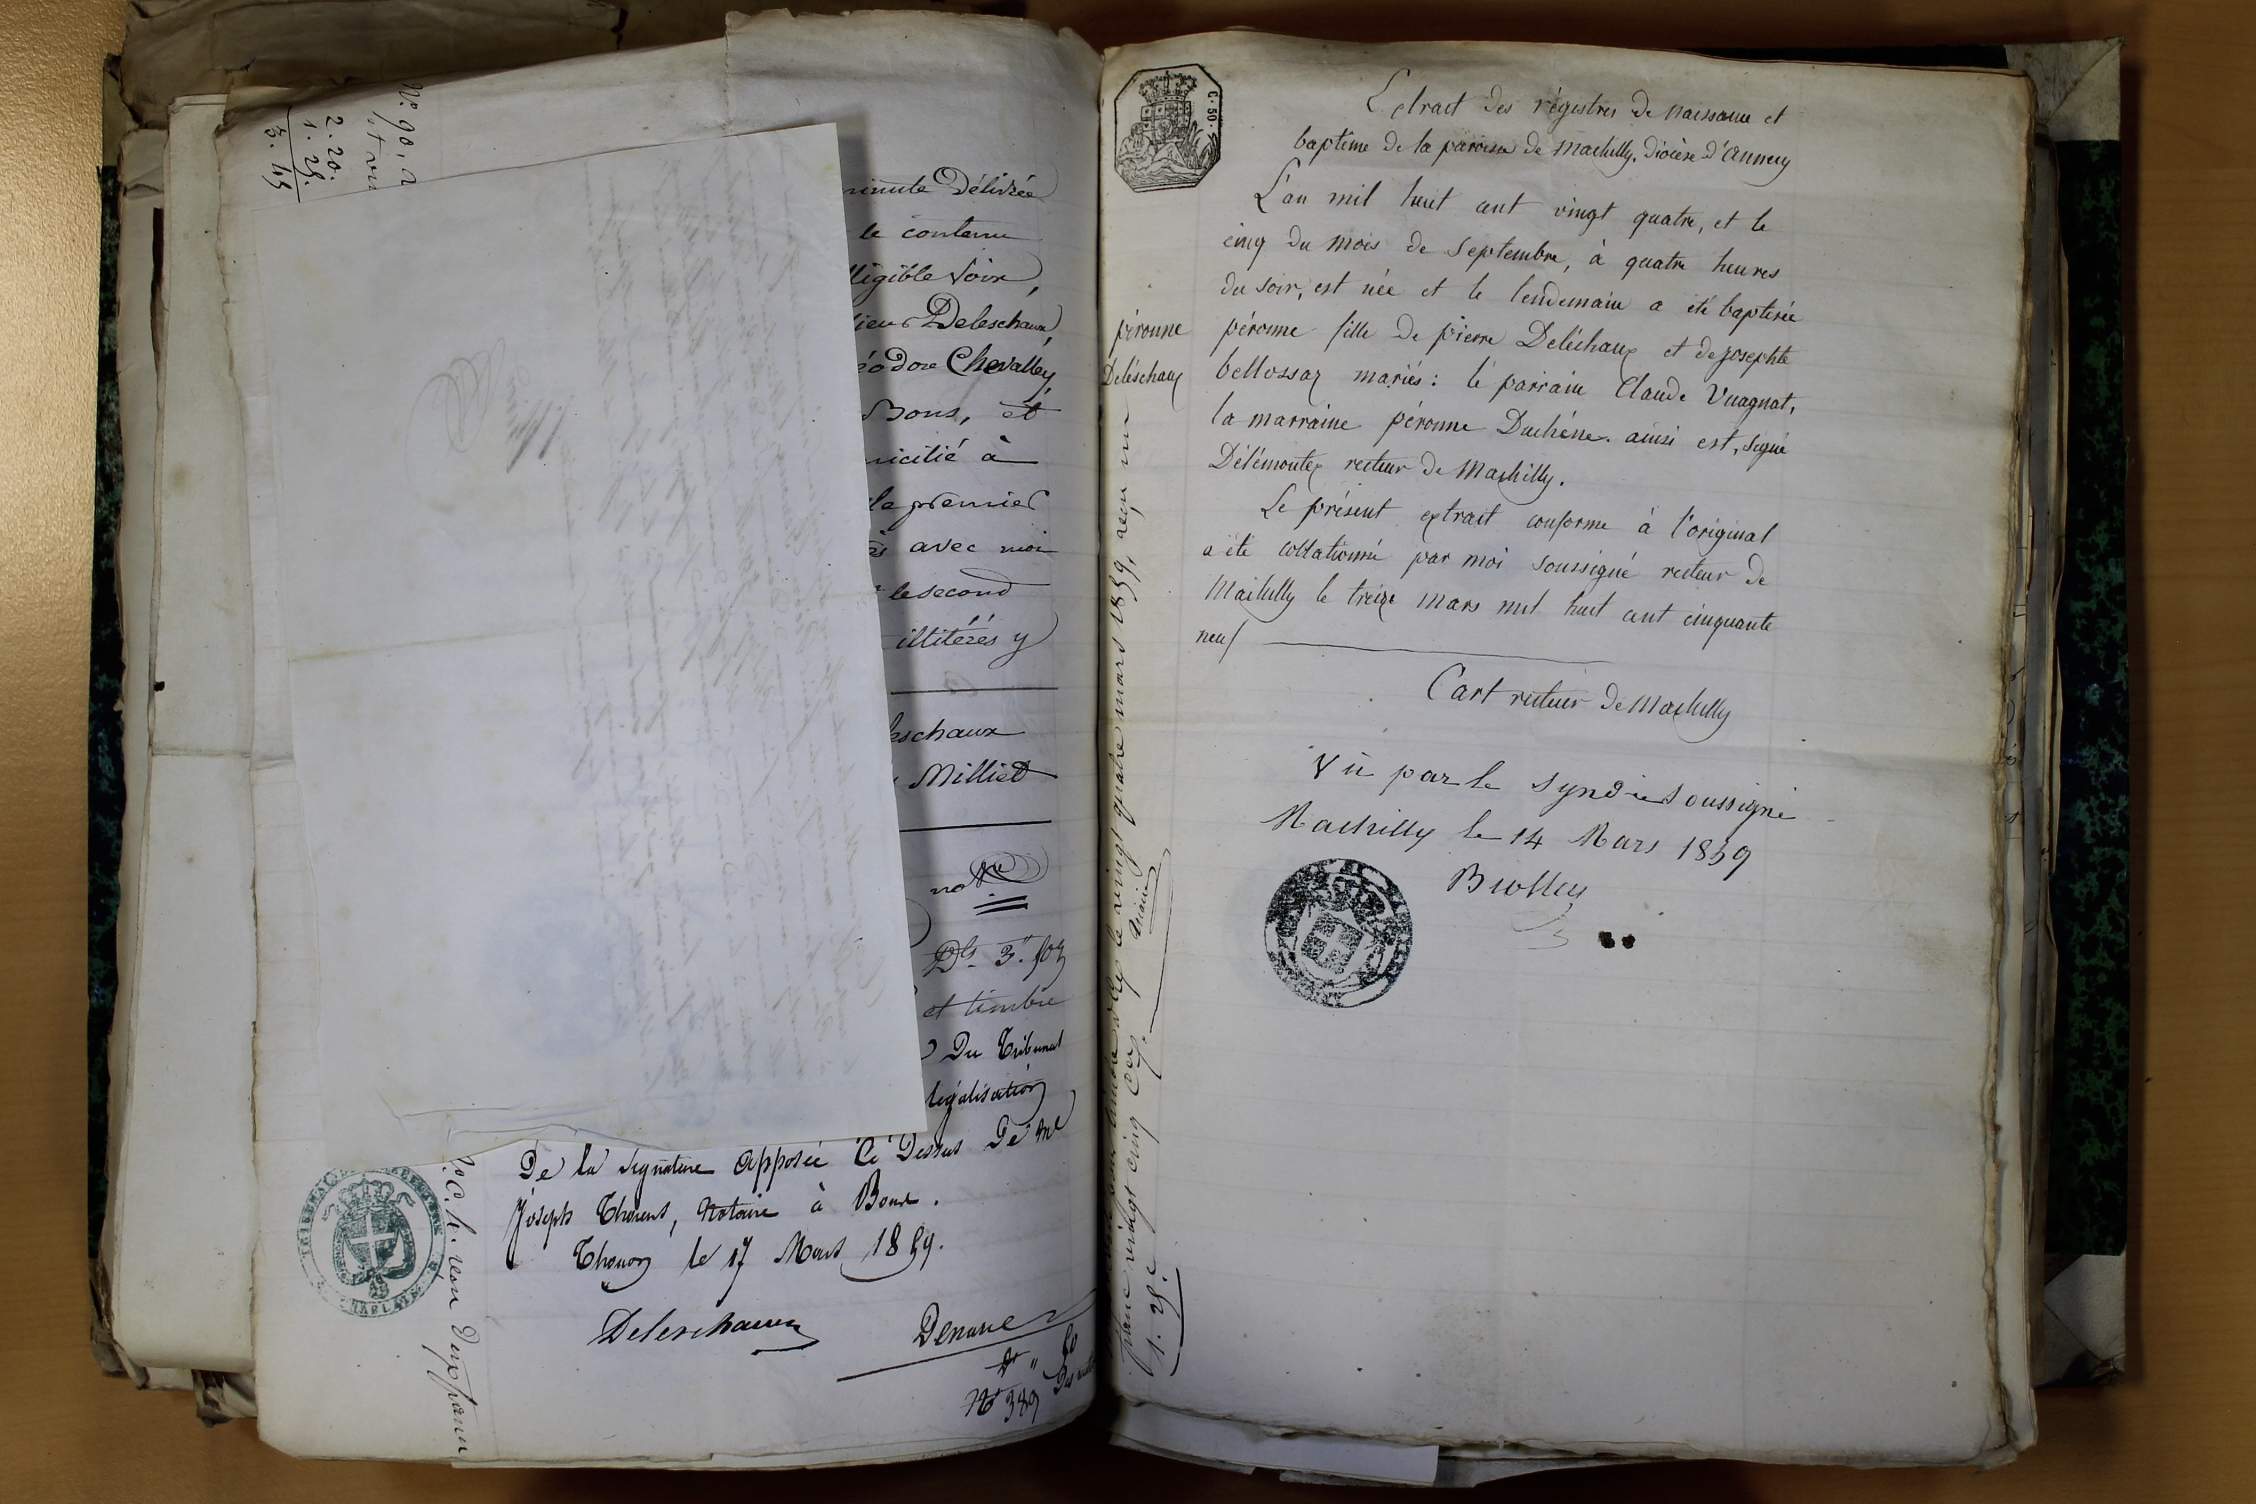 N.º 90, 2
2. 20.
1. 25.
3. 45
minute Délivrée
le contenu
lligible voix,
sieur Deleschaux,
éodore Chevalley,
Bons, et
micilié à
le premier
és avec moi
le second
illitérés y
eschaux
Milliet
not.re
D.ts 3." 50
et timbre
Du Tribunal
légalisation
De la Signature apposée Ci Dessus De M.e
Joseph Thorens, Notaire à Bons.
Thonon le 17 Mars 1859.
Deleschaux
N.º 389
C. 50.
Extrait des régistres de naissance et
baptème de la paroisse de Machilly. Diocèse d'annecy
L'an mil huit cent vingt quatre, et le
cinq du mois de Septembre, à quatre heures
du soir, est née et le lendemain a été baptisée
péronne
péronne fille de pierre Deléchaux et de josephte
Deléschaux
bellossaz mariés : le parrain Claude Vuagnat,
la marraine péronne Duchêne. ainsi est, signé
Délémontex recteur de Machilly.
Le présent extrait conforme à l'original
a été collationné par moi soussigné recteur de
Machilly le treize mars mil huit cent cinquante
neuf
Cart recteur de Machilly
Vû par le Syndic soussigné
Machilly le 14 Mars 1859
le vingt quatre mars 1859, reçu un
franc vingt cinq C.es
1. 25. c